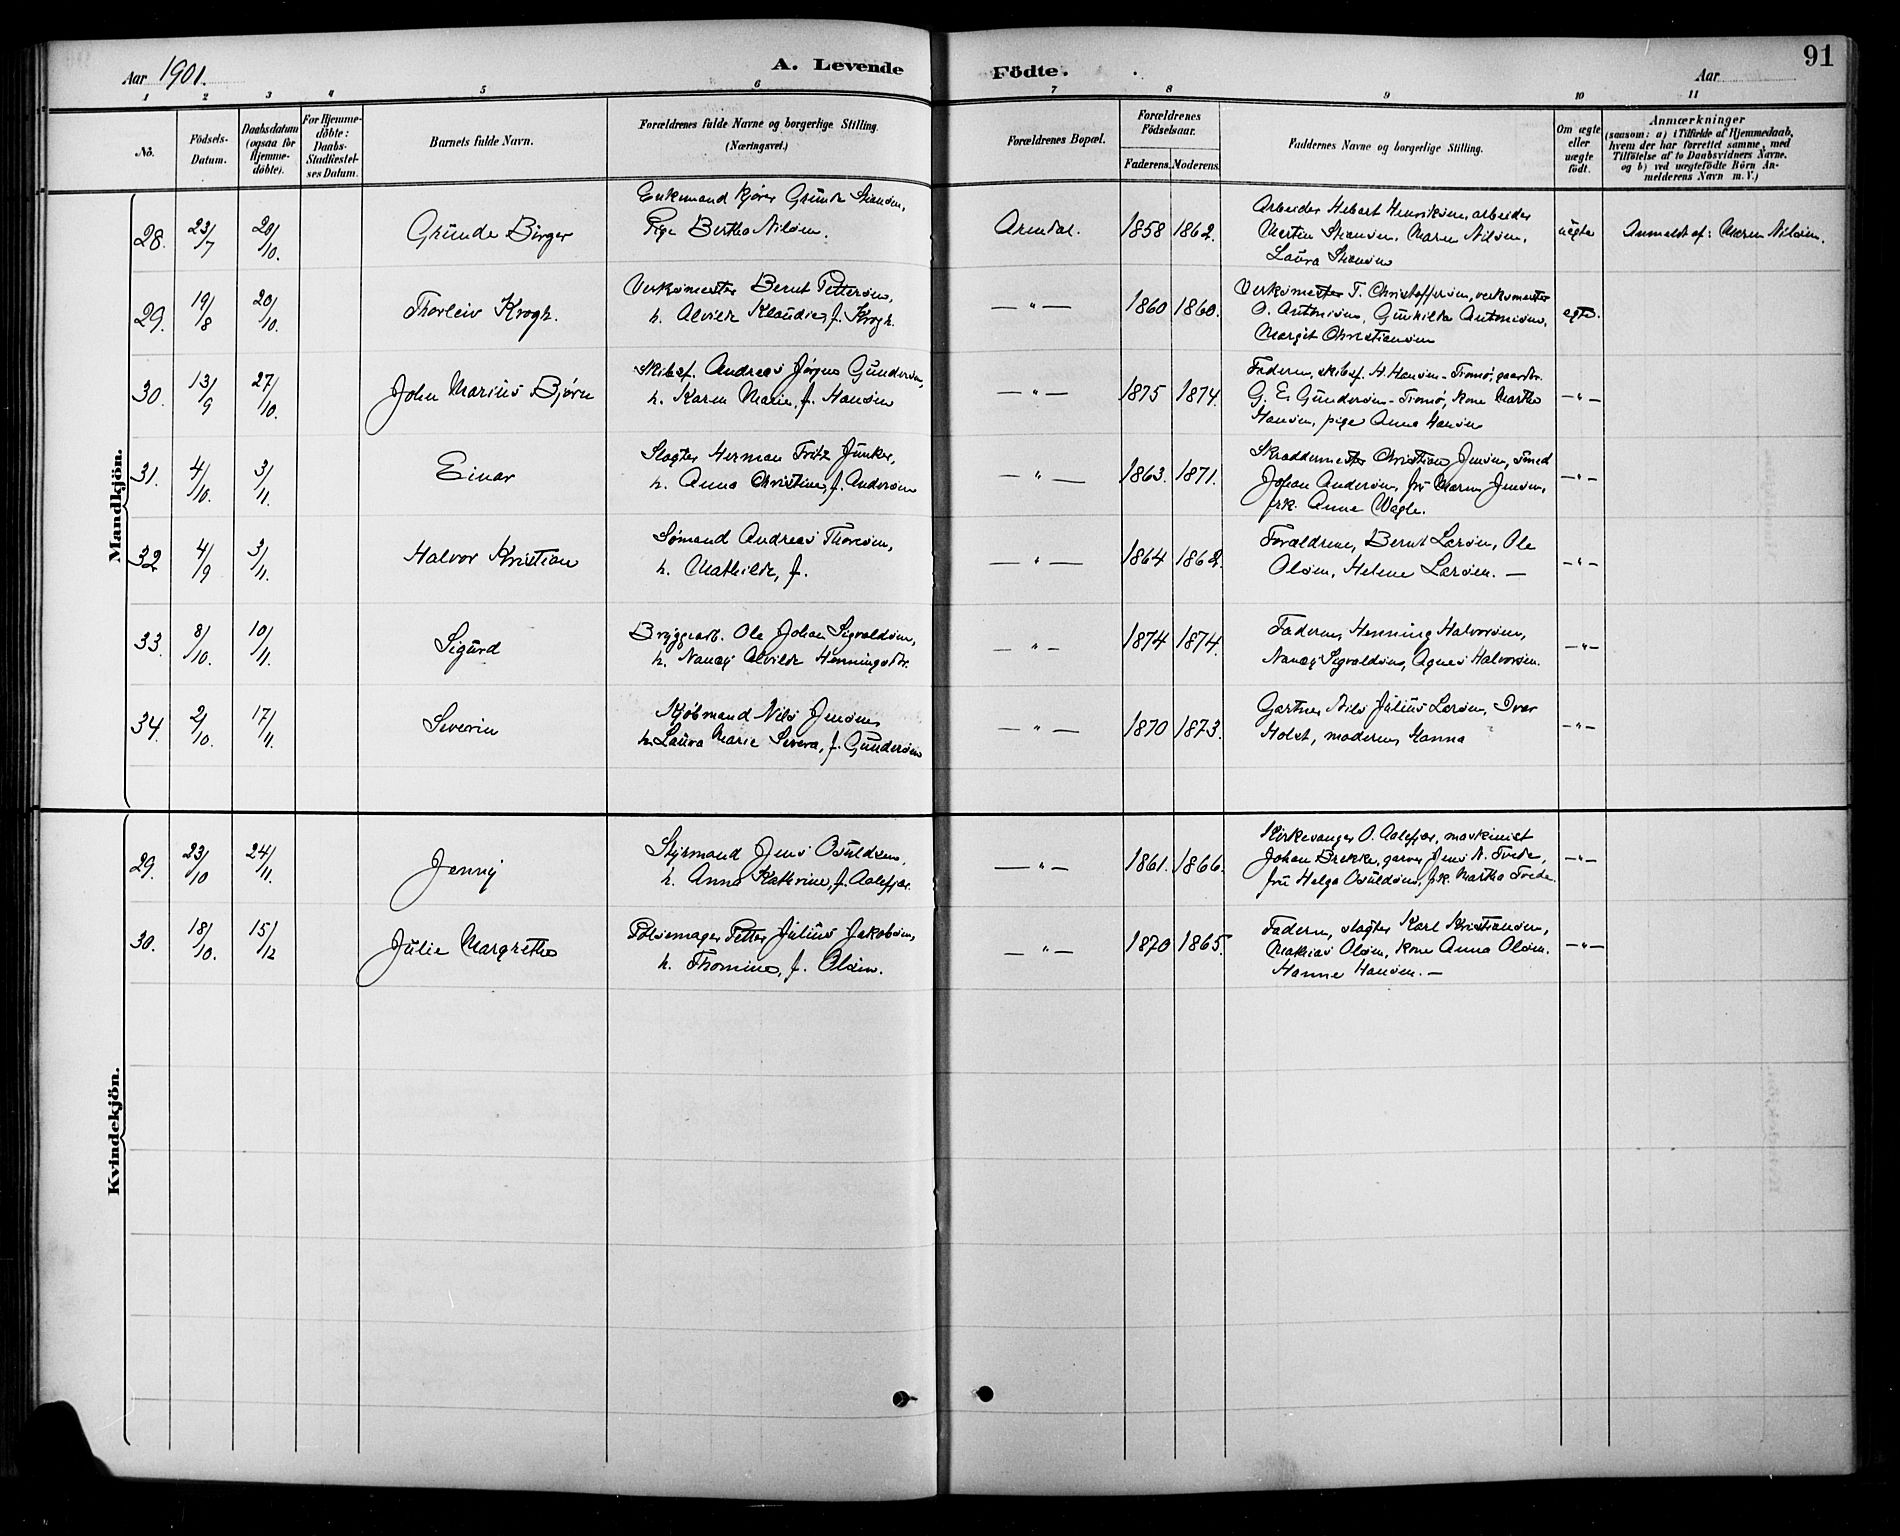 Aar 1901.
A. Levende Födte.
Aar
91
1 2 3 4 5 6 7 8 9 10 11
No. Födsels-Datum. Daabsdatum (ogsaa for Hjemme-döbte). For Hjemme-döbte: Daabs-Stadfæstel-ses Datum. Barnets fulde Navn. Forældrenes fulde Navne og borgerlige Stilling. (Næringsvei.) Forældrenes Bopæl. Forældrenes Födselsaar. Faderens. Moderens. Faddernes Navne og borgerlige Stilling. Om ægte eller uægte födt. Anmærkninger (saasom: a) i Tilfælde af Hjemmedaab, hvem der har forrettet samme, med Tilföielse af to Daabsvidners Navne. og b) ved uægtefödte Börn An-melderens Navn m. V.)
Mandkjön.
28. 23/7 20/10. Gründe Birger
Enkemand kjører Gründe
Pige Bertha Nilsen.
Arendal. 1858 1862.
Arbeider Hebert Henriksen, arbeider
Martin, Maren Nilsen,
Laura
uegte
Anmeldt af: Maren Nilsen.
29. 19/8 20/10. Thorleiv Krogh.
Verksmester Bernt Pettersen,
h. Alvilde Klaudia, f. Krogh.
— " — 1860 1860.
Verksmester T. Christoffersen, verksmester
O. Antonisen, Gunhilda Antonisen,
Margit Christiansen
egte.
30. 13/9 27/10. John Marius Bjørn
Skibsf. Andreas Jørgen Gundersen,
h. Karen Marie, f. Hansen
— " — 1875 1874.
Faderen, skibsf. H. Hansen - Tromø, gaardbr.
G. E. Gundersen - Tromø, kone Martha
Hansen, pige Anna Hansen
— " —
31. 4/10. 3/11. Einar
Slagter Herman Fritz Junker,
h. Anna Christine, f. Andersen
— " — 1863. 1871.
Skræddermester Christian Jensen, smed
Johan Andersen, fru Maren Jensen,
frk. Anna Wagle.
— " —
32 4/9 3/11. Halvor Kristian
Sømand Andreas Thoresen,
h. Mathilde, f.
— " — 1864 1862.
Forældrene, Bernt Larsen, Ole
Olsen, Helene Larsen. —
— " —
33. 8/10. 10/11. Sigurd
Bryggearb. Ole Johan Sigvaldsen,
h. Nancy Alvilde Henningsdtr.
— " — 1874 1874.
Faderen, Henning Halvorsen,
Nancy Sigvaldsen, Agnes Halvorsen.
— " —
34. 2/10. 17/11. Severin
Kjøbmand Nils Jensen,
h. Laura Marie Severa, f. Gundersen
— " — 1870 1873.
Gartner Nils Julius Larsen, Ivar
Holst, moderen, Hanna
— " —
Kvindekjön.
29. 23/10 24/11. Jenny
Styrmand Jens Osuldsen,
h. Anna Kathrine, f. Aalefjær.
— " — 1861. 1866.
Kirkesanger O. Aalefjær, maskinist
Johan Brekke, garver Jens N. Tvede,
fru Helga Osuldsen, frk. Martha Tvede.
— " —
30. 18/10. 15/12 Julie Margrethe
Pølsemager Petter Julius Jakobsen,
h. Thomine, f. Olsen.
— " — 1870 1865.
Faderen, slagter Karl Kristiansen,
Mathias Olsen, kone Anna Olsen.
Hanne Hansen. —
— " —